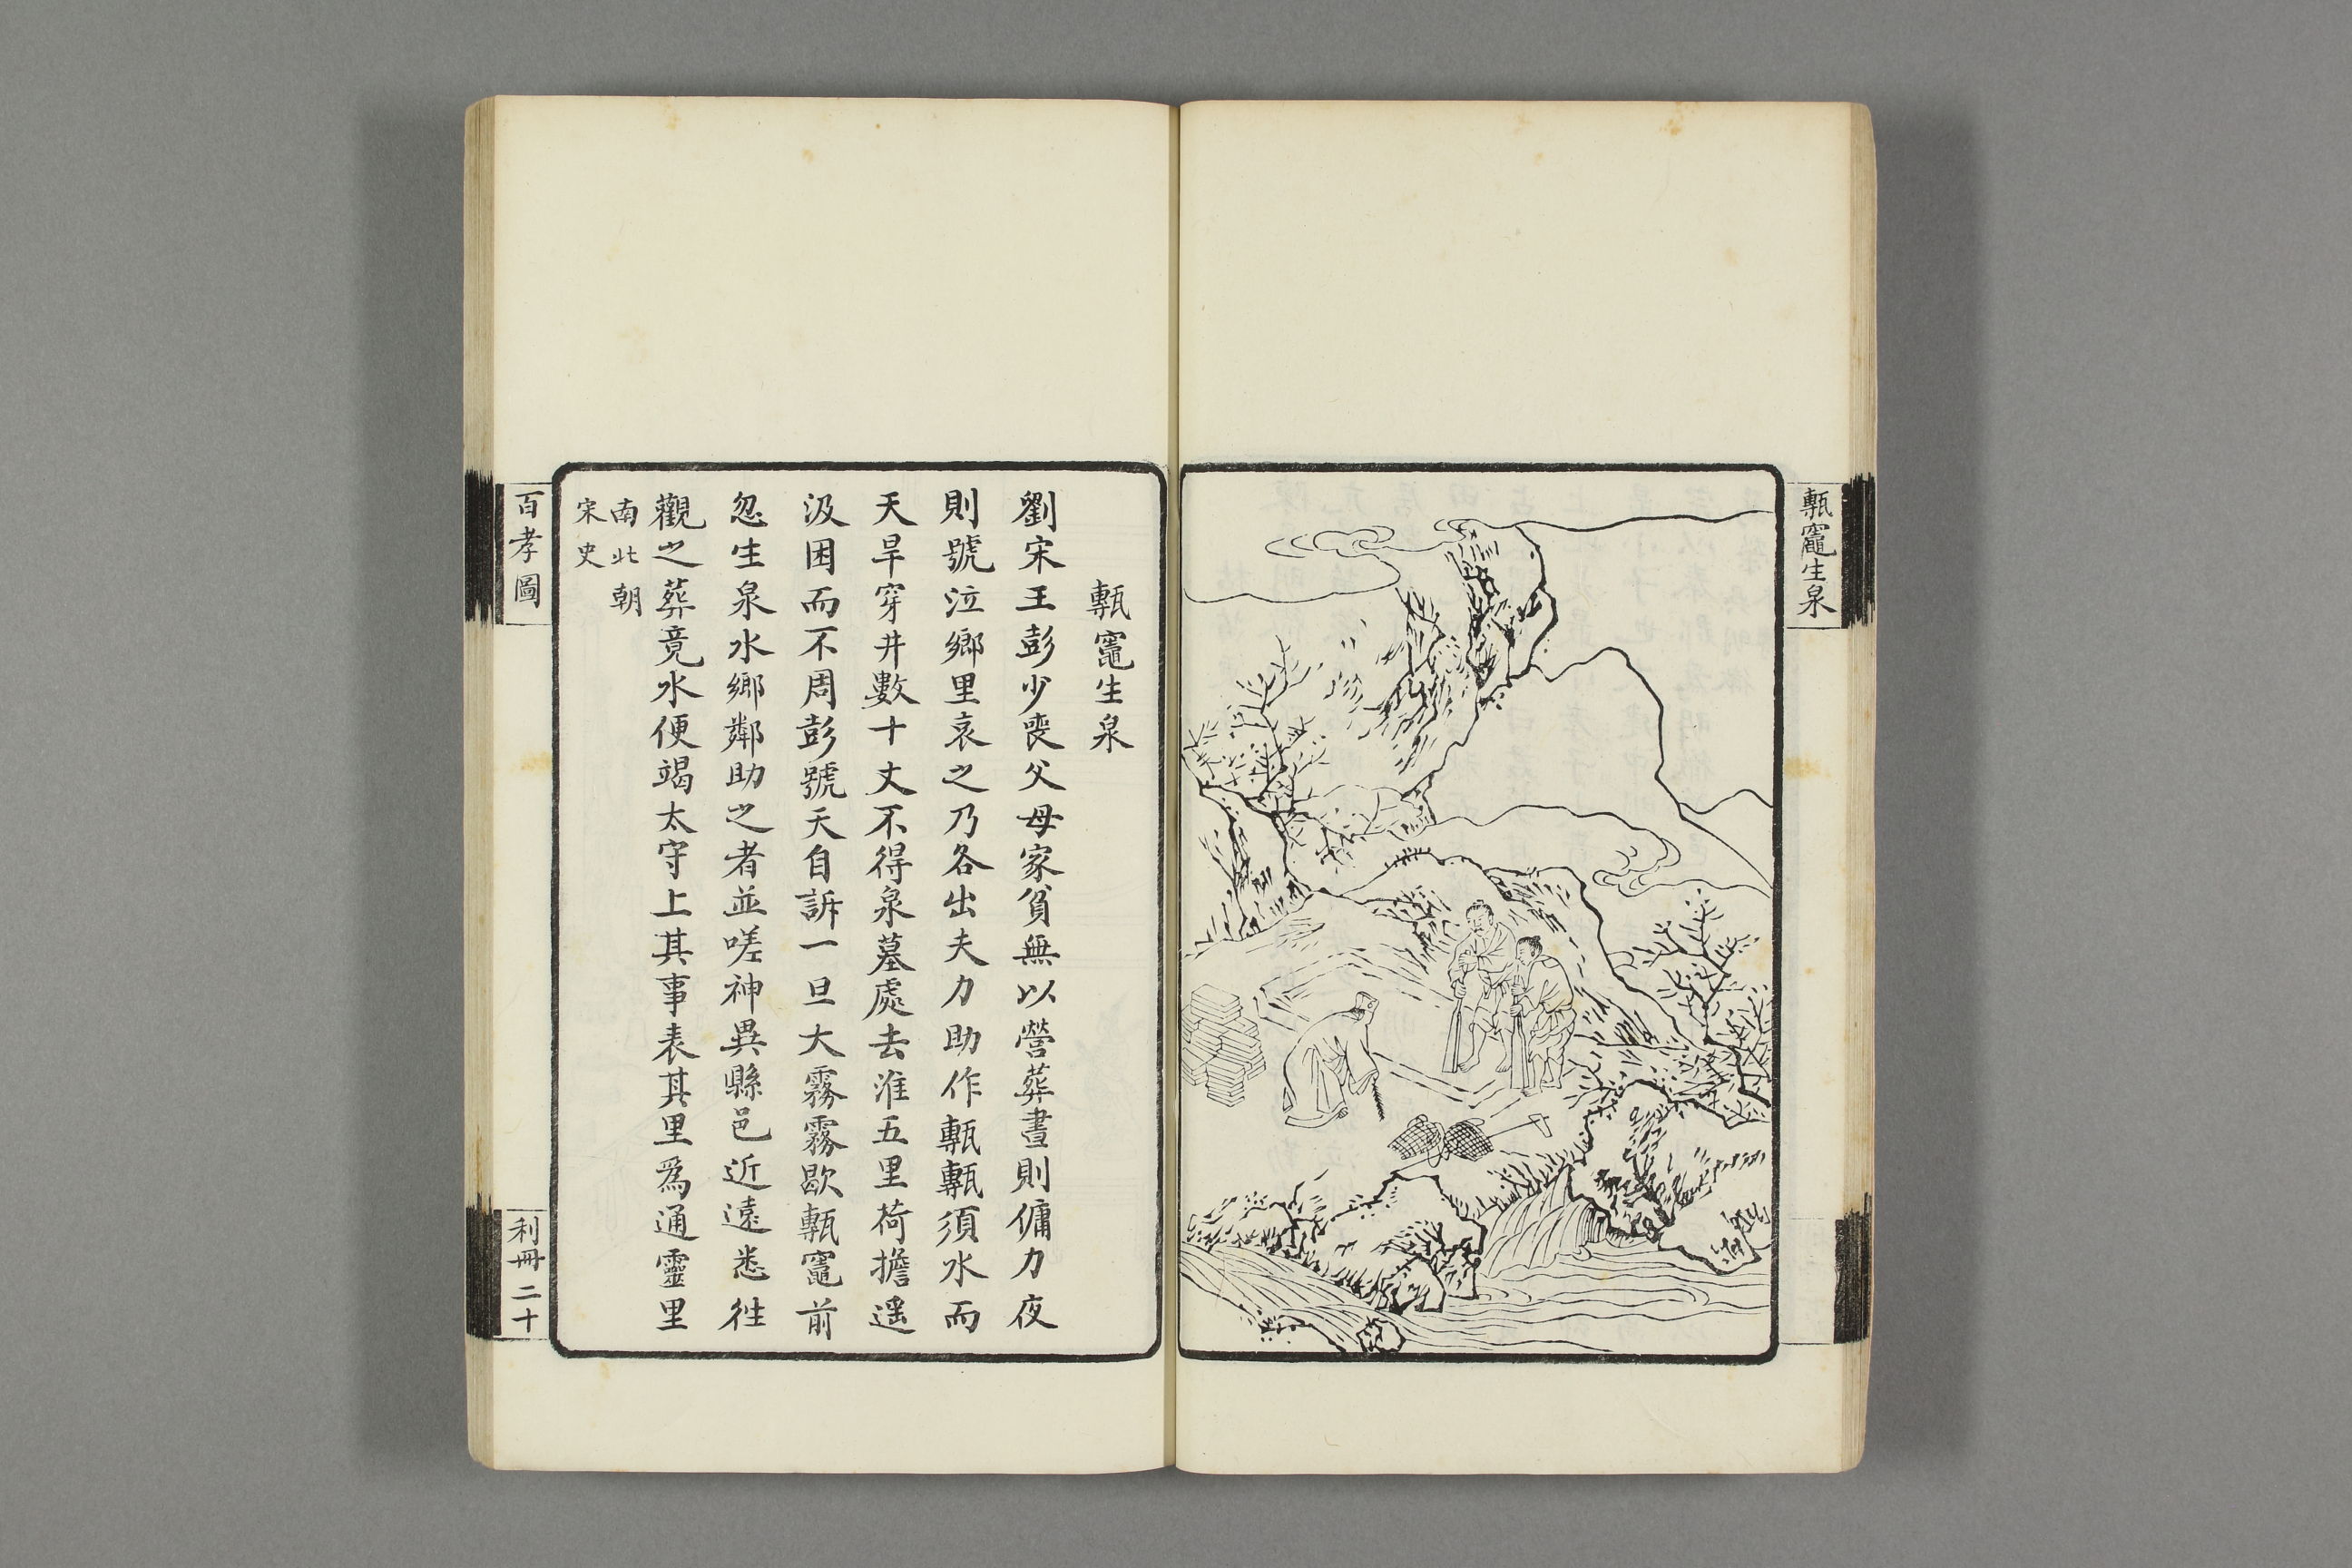 甎竈生泉
甎竈生泉
劉宋王彭少喪父母家貧無以營葬晝則傭力夜
則號泣鄉里哀之乃各出夫力助作甎甎須水而
天旱穿井數十丈不得泉墓處去淮五里荷擔遥
汲困而不周彭號天自訴一旦大霧霧歇甎竈前
忽生泉水鄉鄰助之者並嗟神異縣邑近遠悉徃
觀之葬竟水便竭太守上其事表其里爲通靈里
南北朝
宋史
百孝圖
利冊二十